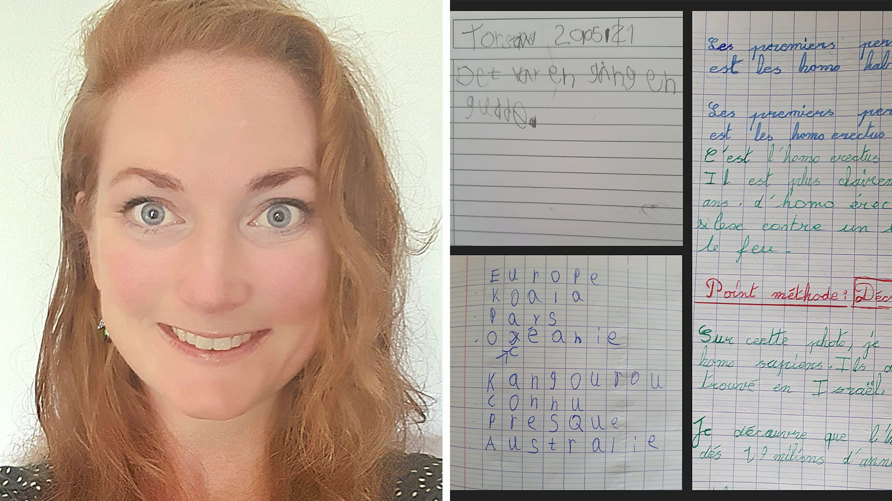 Det var en gång en
gubbe.
Europe
Koala
Pars
Oxéanie
c
Kangourou
Connu
Presque
Australie
Les premiers
est les homo
Les premiers
est les homo erectus
C'est l'homo erectus
Il est plus
ans. d'homo
contre un
le feu.
Point méthode:
Sur cette photo, je
homo sapiens. Ils
trouvé en Israël.
Je découvre que
dés 1,9 milions